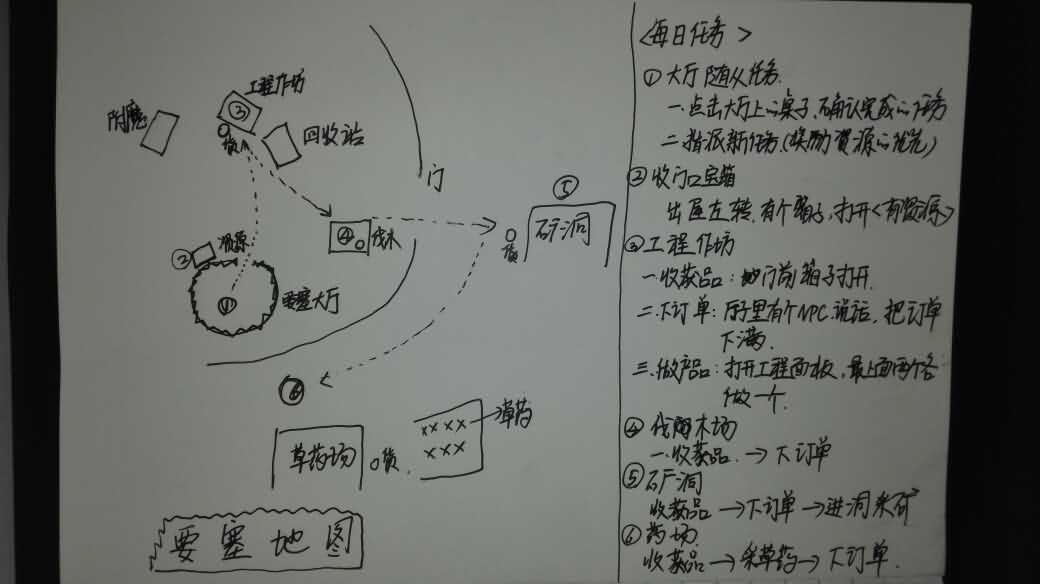 工程作坊
③
附魔
回收站
货
门
⑤
矿洞
货
④
伐木
②
资源
①
要塞大厅
⑥
草药场
货
草药
xx xx
xxx
要塞地图
<每日任务>
①大厅随从任务.
一.点击大厅上的桌子,确认完成的任务
二.指派新任务.(奖励资源的优先)
②收门口宝箱
出屋左转,有个箱子,打开<有资源>
③工程作坊
一.收获品:门前箱子打开.
二.下订单:房子里有个NPC.说话,把订单
下满.
三.做产品:打开工程面板,最上面两个各
做一个.
④伐木场
一.收获品.→下订单
⑤矿洞
收获品→下订单→进洞采矿
⑥药场.
收获品→采草药→下订单.